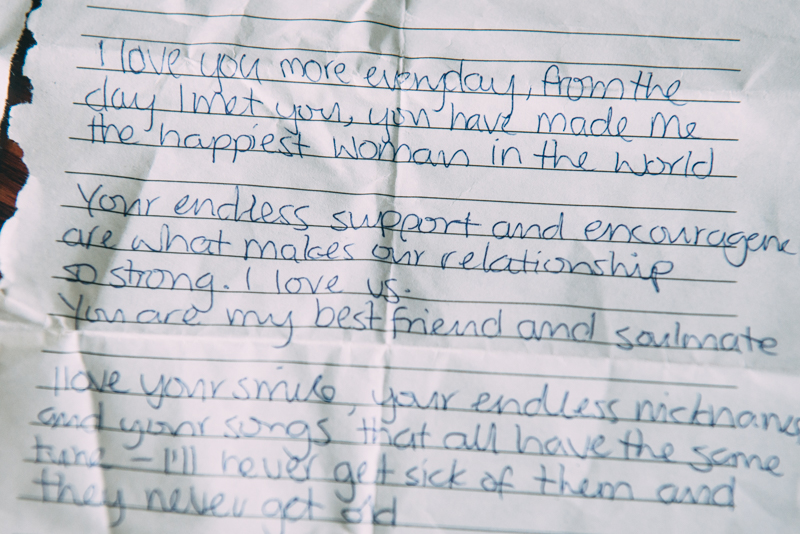 I love you more everyday, from the
day I met you, you have made me
the happiest woman in the world
Your endless support and encourageme
are what makes our relationship
so strong. I love us.
You are my best friend and soulmate
I love your smile, your endless nicknames
and your songs that all have the same
tune - I'll never get sick of them and
they never get old